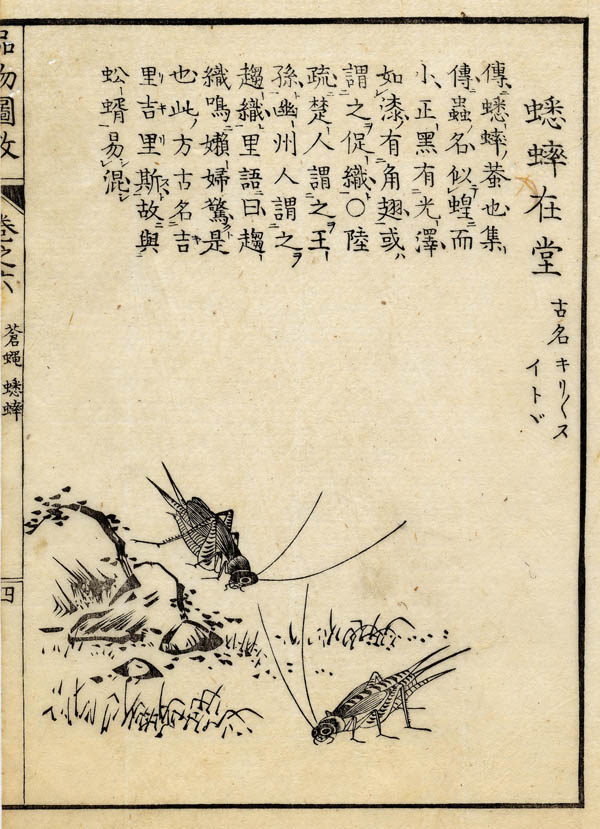 蟋蟀在堂
古名キリ〱ス
イトヾ
傳蟋蟀蛬也集
傳蟲名似蝗而
小正黑有光澤
如漆有角翅或
謂之促織〇陸
疏楚人謂之王
孫幽州人謂之
趨織里語曰趨
織鳴嬾婦驚是
也此方古名吉
里吉里斯故與
蚣蝑易混
品物圖攷
卷之六
蒼蠅 蟋蟀
四